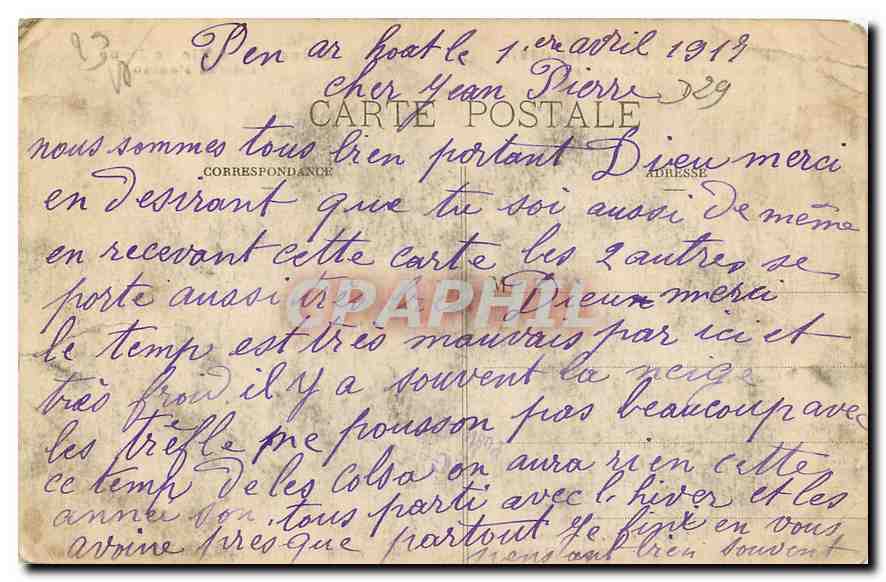 Pen ar hoat le 1.ere avril 1917
cher Jean Pierre D29
CARTE POSTALE
nous sommes tous bien portant Dieu merci
CORRESPONDANCE ADRESSE
en desirant que tu soi aussi de même
en recevant cette carte les 2 autres se
porte aussi très Dieu merci
CPAPHIL
le temp est très mauvais par ici et
très froid. il y a souvent la neige
les trèfle ne pousson pas beaucoup avec
ce temp de les colsa on aura rien cette
année son tous parti avec l'hiver et les
avoine presque partout Je fini en vous
pensant bien souvent